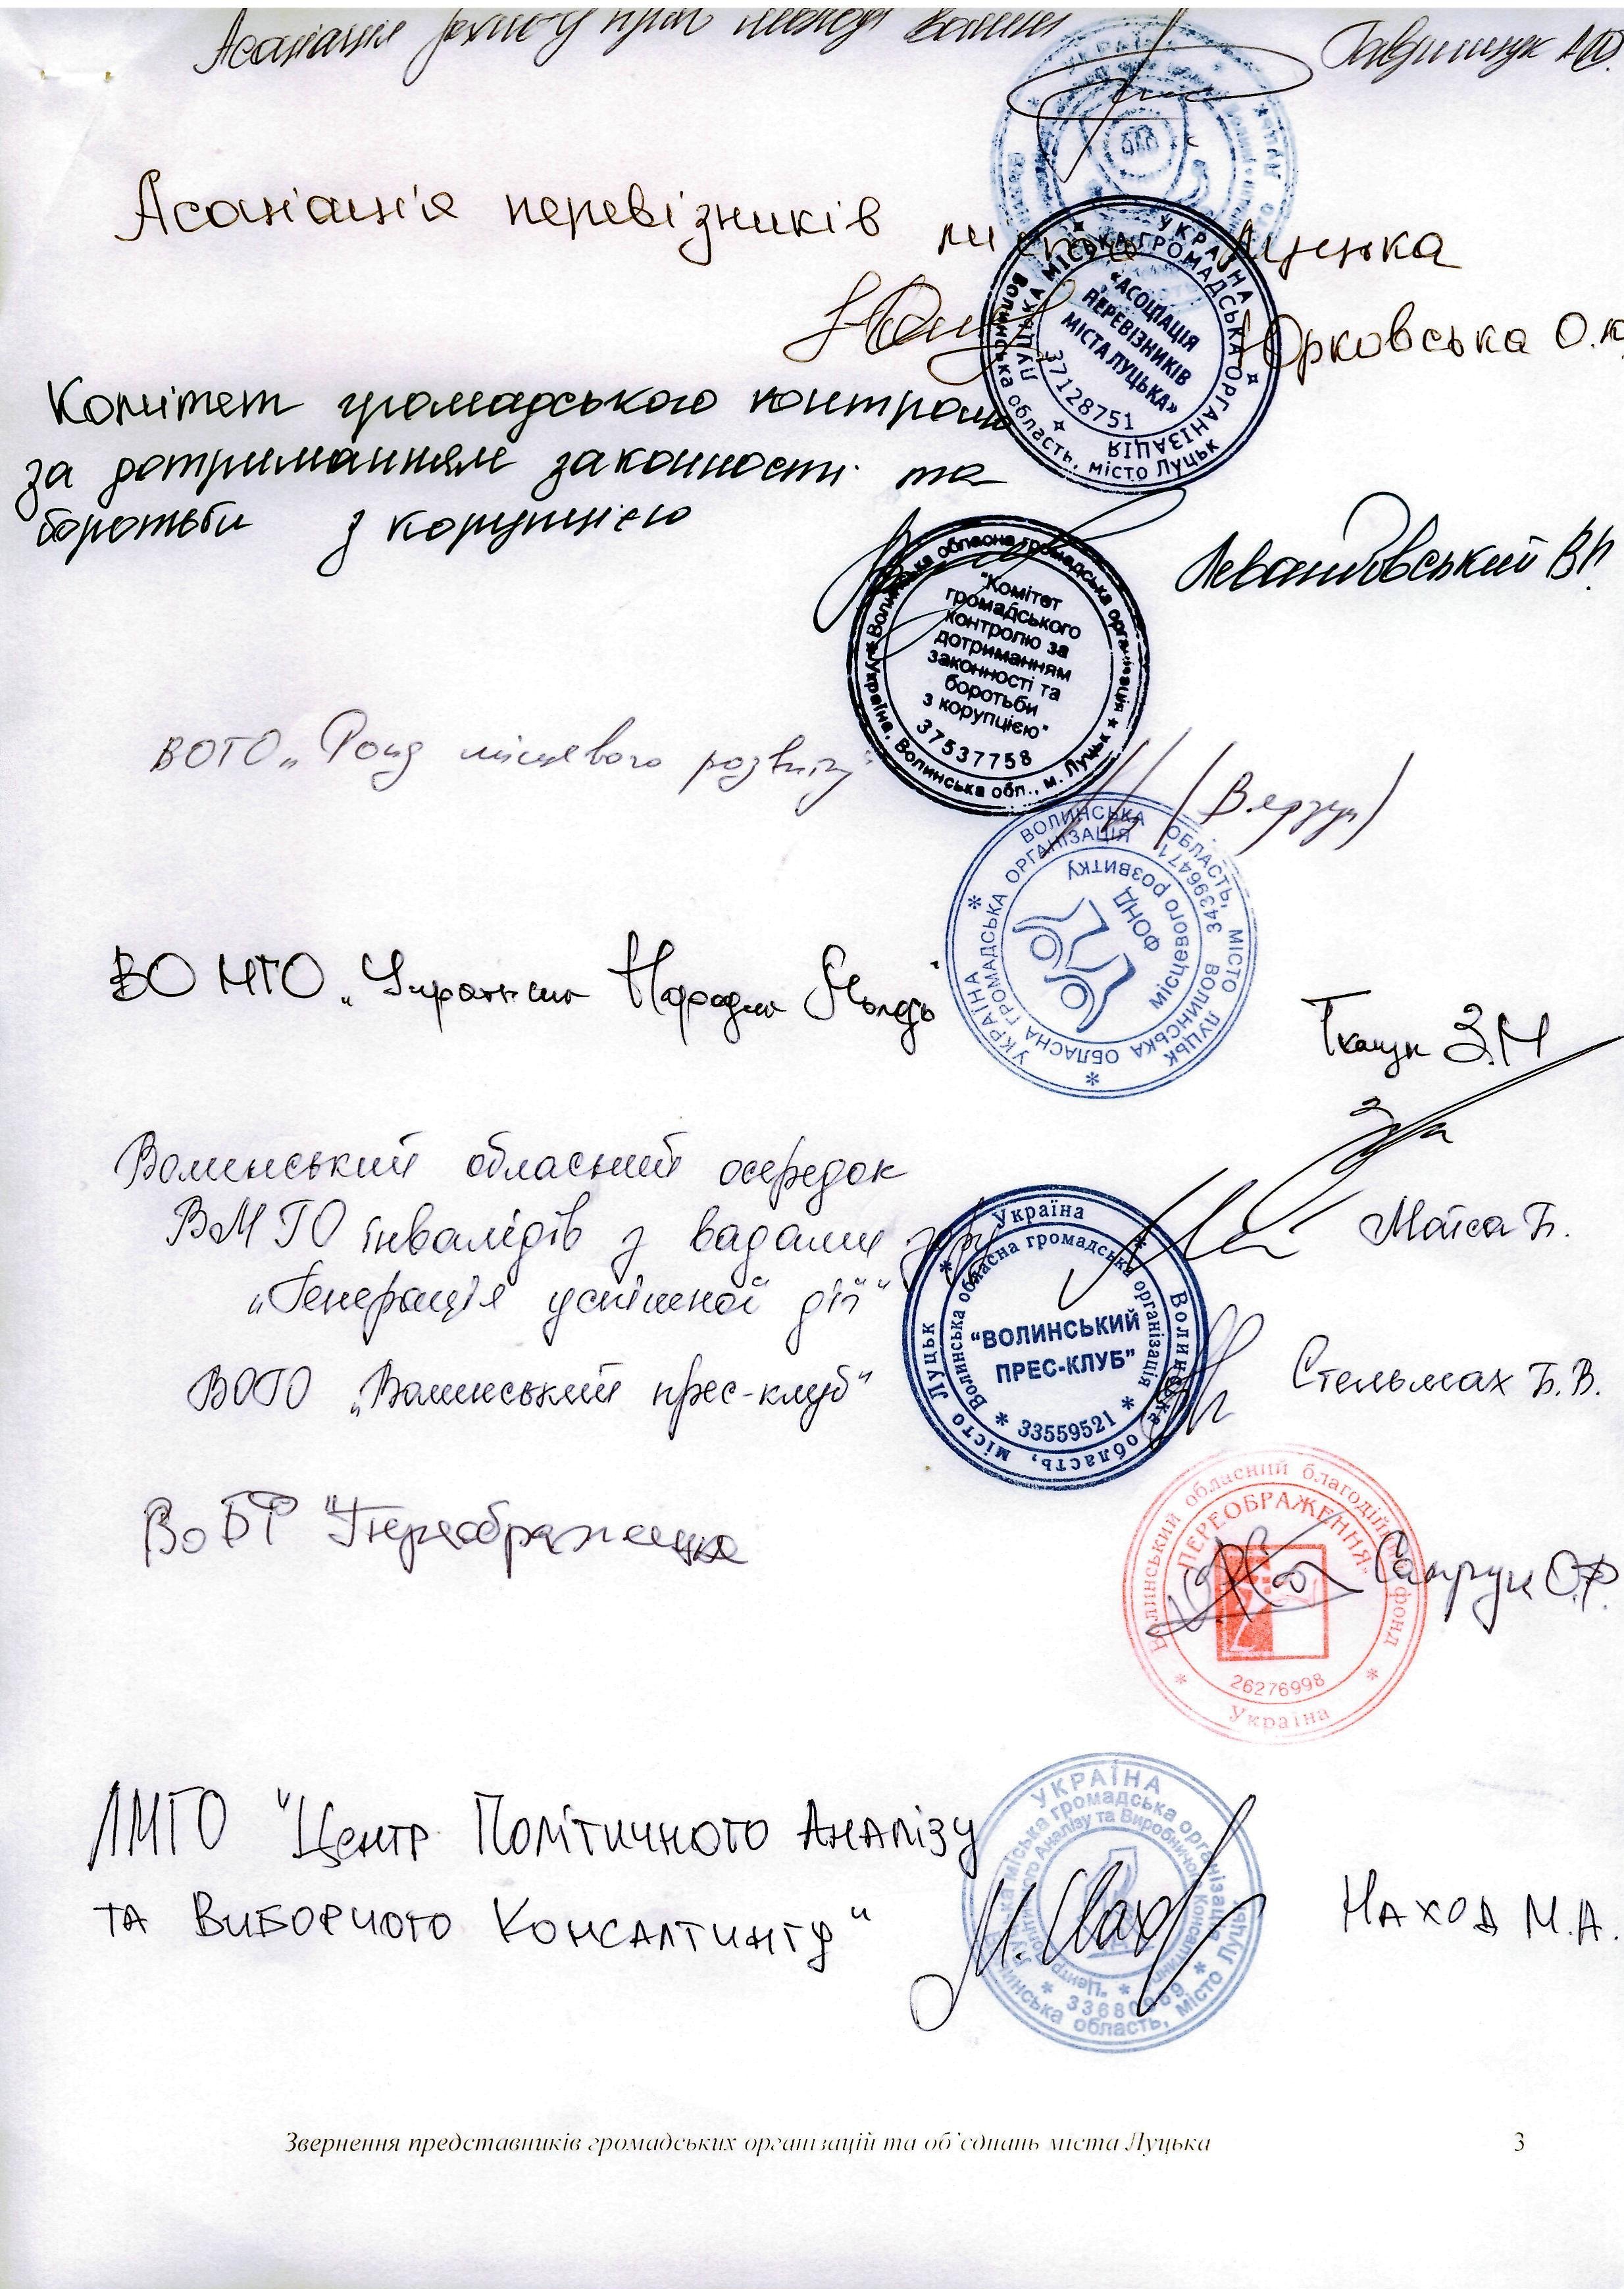 Асоціація захисту прав молоді Волині
Гаврищук
Асоціація перевізників міста Луцька
Юрковська О.
УКРАЇНА
Волинська область, місто Луцьк
ЛУЦЬКА МІСЬКА ГРОМАДСЬКА ОРГАНІЗАЦІЯ
«АСОЦІАЦІЯ
ПЕРЕВІЗНИКІВ
МІСТА ЛУЦЬКА»
37128751
Комітет громадського контролю
за дотриманням законності та
боротьби з корупцією
Левандовський В.
Волинська обласна громадська організація
Україна, Волинська обл., м. Луцьк
"Комітет
громадського
контролю за
дотриманням
законності та
боротьби
з корупцією"
37537758
ВОГО „Фонд місцевого розвитку"
УКРАЇНА ВОЛИНСЬКА ОБЛАСТЬ, МІСТО ЛУЦЬК
ВОЛИНСЬКА ОБЛАСНА ГРОМАДСЬКА ОРГАНІЗАЦІЯ
34396471
ФОНД
місцевого розвитку
ВО МГО „Українська Народна Молодь"
Ткачук З.М
Волинський обласний осередок
ВМГО інвалідів з вадами зору
„Генерація успішної дії"
Мойса Б.
ВОГО „Волинський прес-клуб"
Стельмах Б.В.
Україна
Волинська область, місто Луцьк
Волинська обласна громадська організація
"ВОЛИНСЬКИЙ
ПРЕС-КЛУБ"
33559521
ВОБФ "Переображення
Сапрун О.Ф.
Волинський обласний благодійний фонд
"ПЕРЕОБРАЖЕННЯ"
26276998
Україна
ЛМГО "Центр Політичного Аналізу
та Виборчого Консалтингу"
Наход М.А.
УКРАЇНА
Волинська область, місто Луцьк
Луцька міська громадська організація
Звернення представників громадських організацій та об'єднань міста Луцька 3